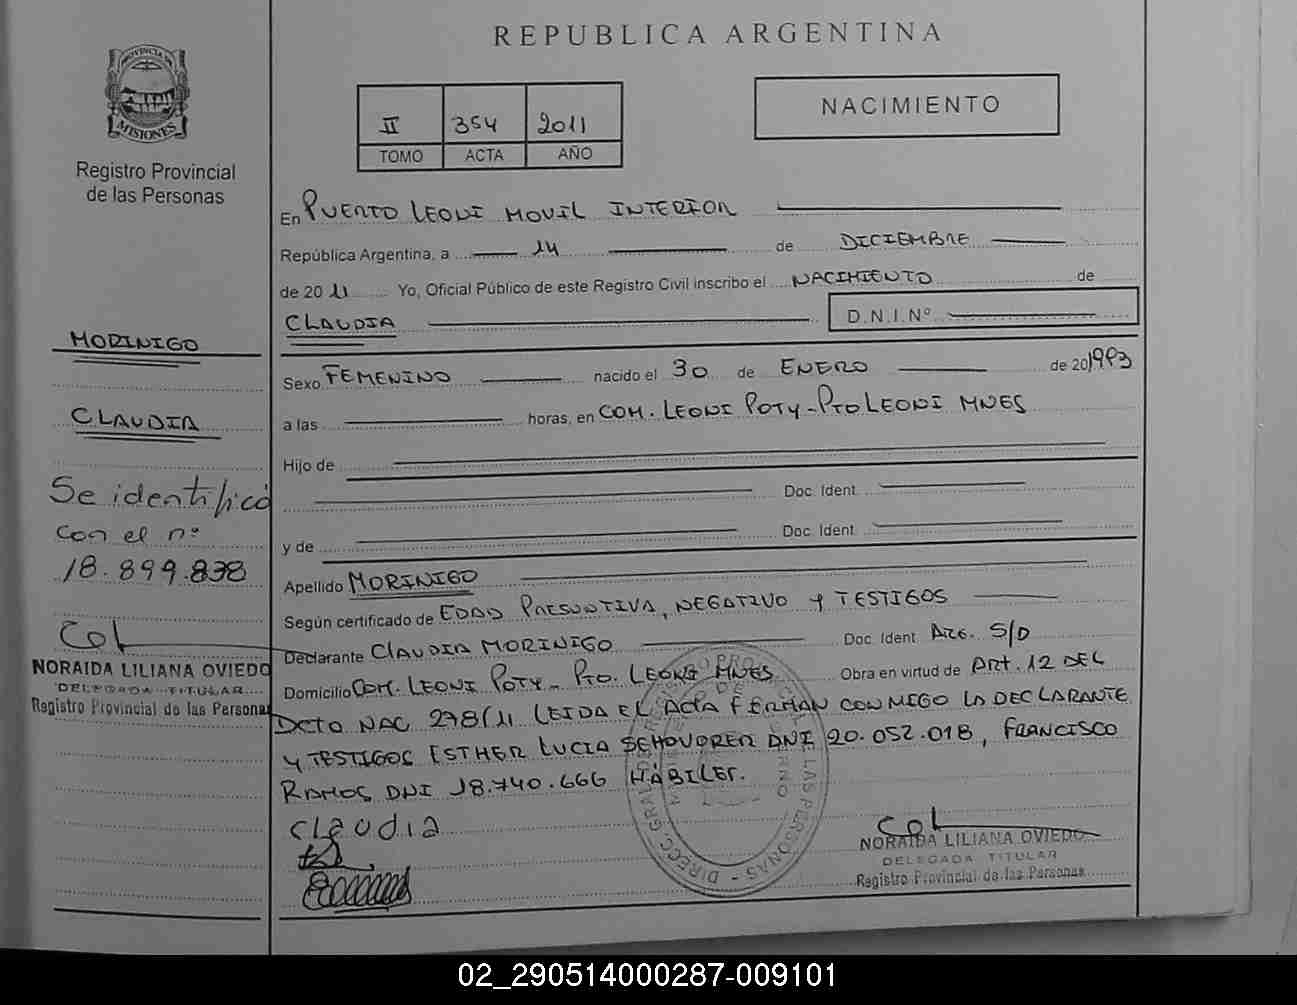 REPUBLICA ARGENTINA
PROVINCIA DE
MISIONES
Registro Provincial
de las Personas
II 354 2011
TOMO ACTA AÑO
NACIMIENTO
En PUERTO LEONI MOVIL INTERIOR
República Argentina, a 14 de DICIEMBRE
de 20 11 Yo, Oficial Público de este Registro Civil inscribo el NACIMIENTO de
CLAUDIA D.N.I. Nº
MORINIGO
CLAUDIA
Se identificó
con el nº
18.899.838
NORAIDA LILIANA OVIEDO
DELEGADA TITULAR
Registro Provincial de las Personas
Sexo FEMENINO nacido el 30 de ENERO de 20 1993
a las horas, en COM. LEONI POTY - PTO LEONI MNES
Hijo de
Doc. Ident.
y de Doc. Ident.
Apellido MORINIGO
Según certificado de EDAD PRESUNTIVA, NEGATIVO Y TESTIGOS
Declarante CLAUDIA MORINIGO Doc. Ident. ARG. S/D
Domicilio COM. LEONI POTY - PTO. LEONI MNES Obra en virtud de ART. 12 DEL
DCTO NAC 278/11 LEIDA EL ACTA FIRMAN CONMIGO LA DECLARANTE
Y TESTIGOS ESTHER LUCIA DNI 20.052.018, FRANCISCO
RAMOS DNI 18.740.666 HÁBILES.
claudia
NORAIDA LILIANA OVIEDO
DELEGADA TITULAR
Registro Provincial de las Personas
02_290514000287-009101